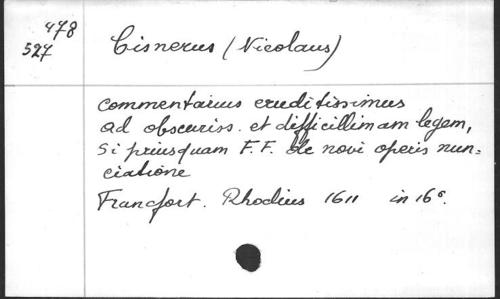 478
527
Cisnerus (Nicolaus)
commentarius eruditissimus
ad obscuriss. et difficillimam legem,
Si priusquam F.F. de novi operis nun-
ciatione
Francfort. Rhodius 1611 in 16°.